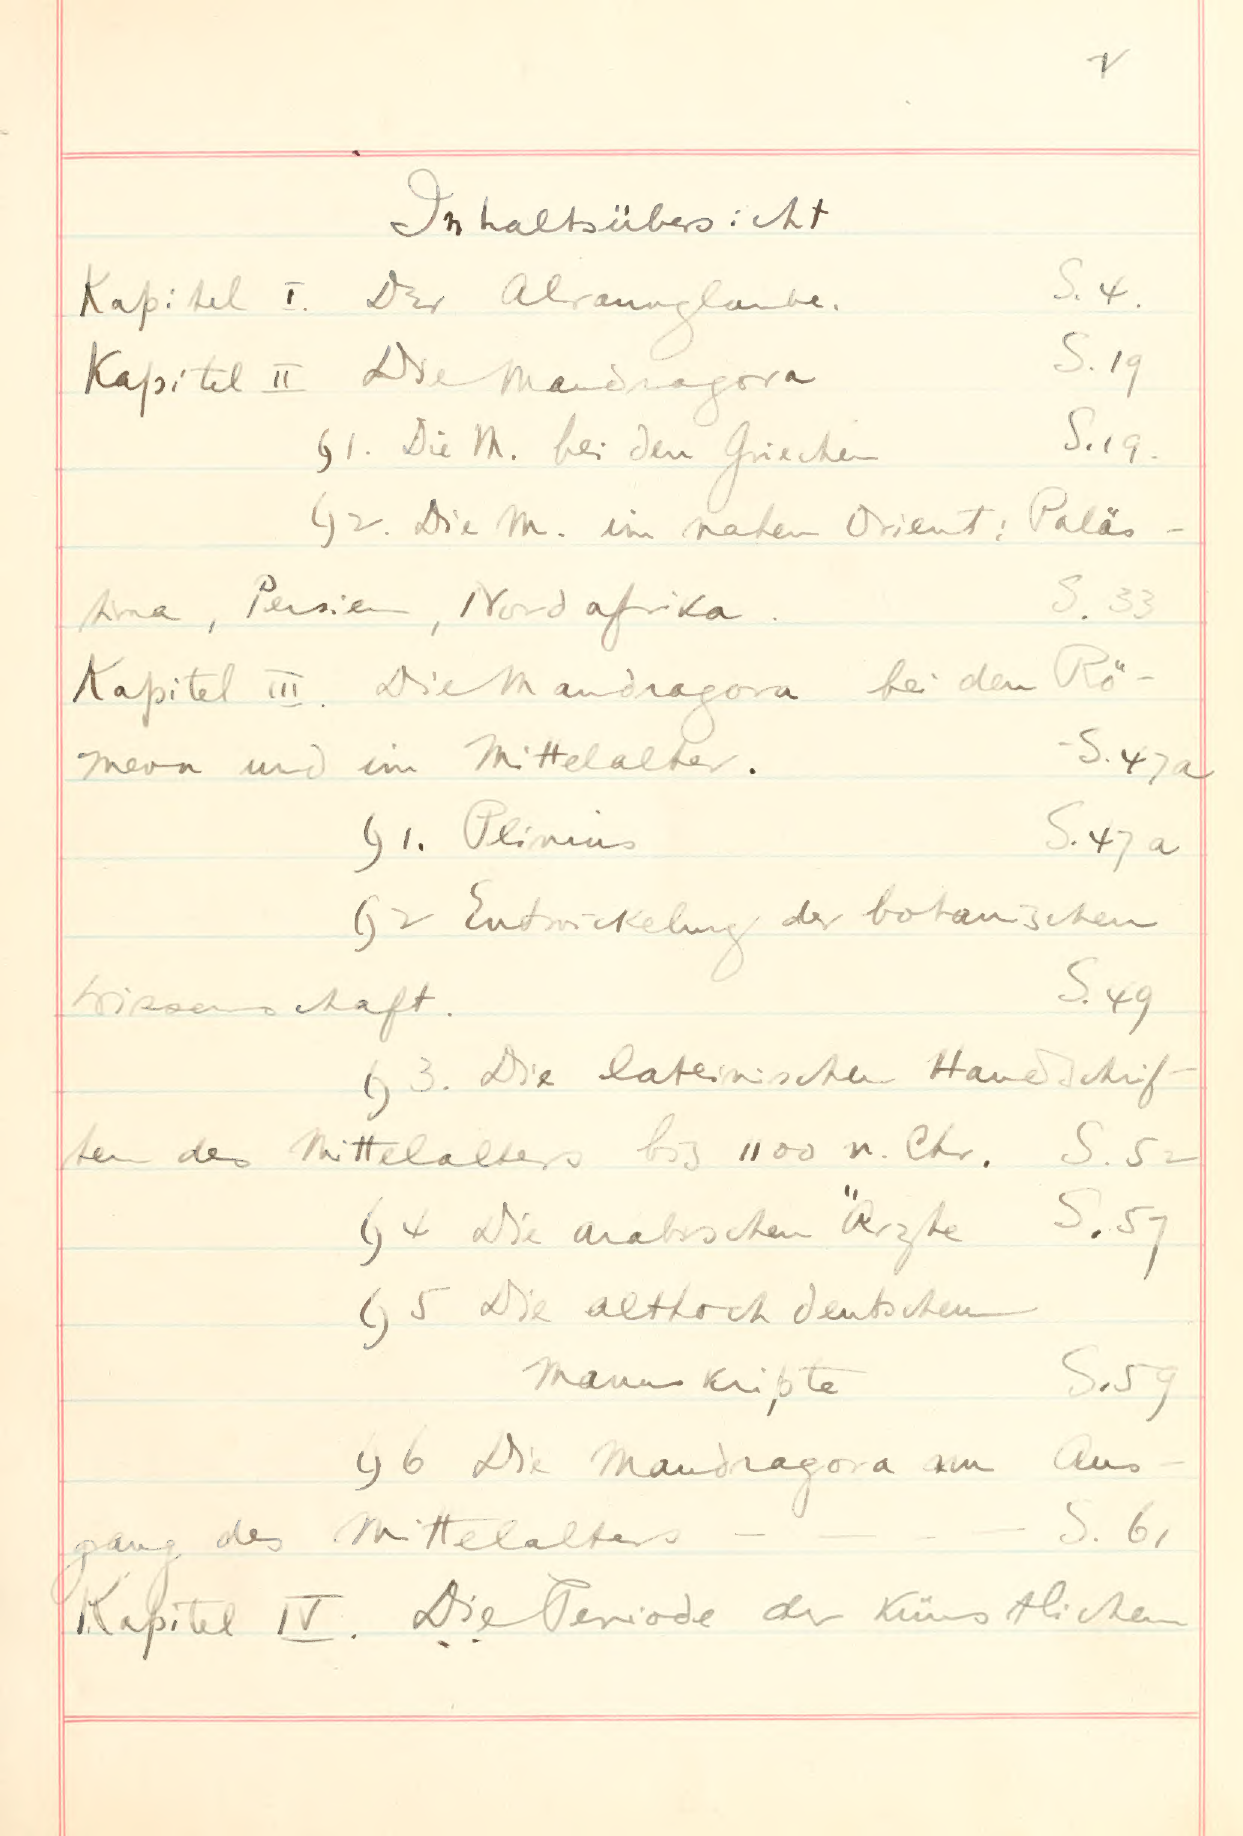 V
Inhaltsübersicht
Kapitel I. Der Alraunglaube. S. 4.
Kapitel II Die Mandragora S. 19
§ 1. Die M. bei den Griechen S. 19.
§ 2. Die M. im nahen Orient: Paläs-
tina, Persien, Nordafrika. S. 33
Kapitel III. Die Mandragora bei den Rö-
mern und im Mittelalter. - S. 47a
§ 1. Plinius S. 47a
§ 2 Entwickelung der botanischen
Wissenschaft. S. 49
§ 3. Die lateinischen Handschrif-
ten des Mittelalters bis 1100 n. Chr. S. 52
§ 4 Die arabischen Ärzte S. 57
§ 5 Die althochdeutschen
Manuskripte S. 59
§ 6 Die Mandragora am Aus-
gang des Mittelalters - - - - S. 61
Kapitel IV. Die Periode der künstlichen